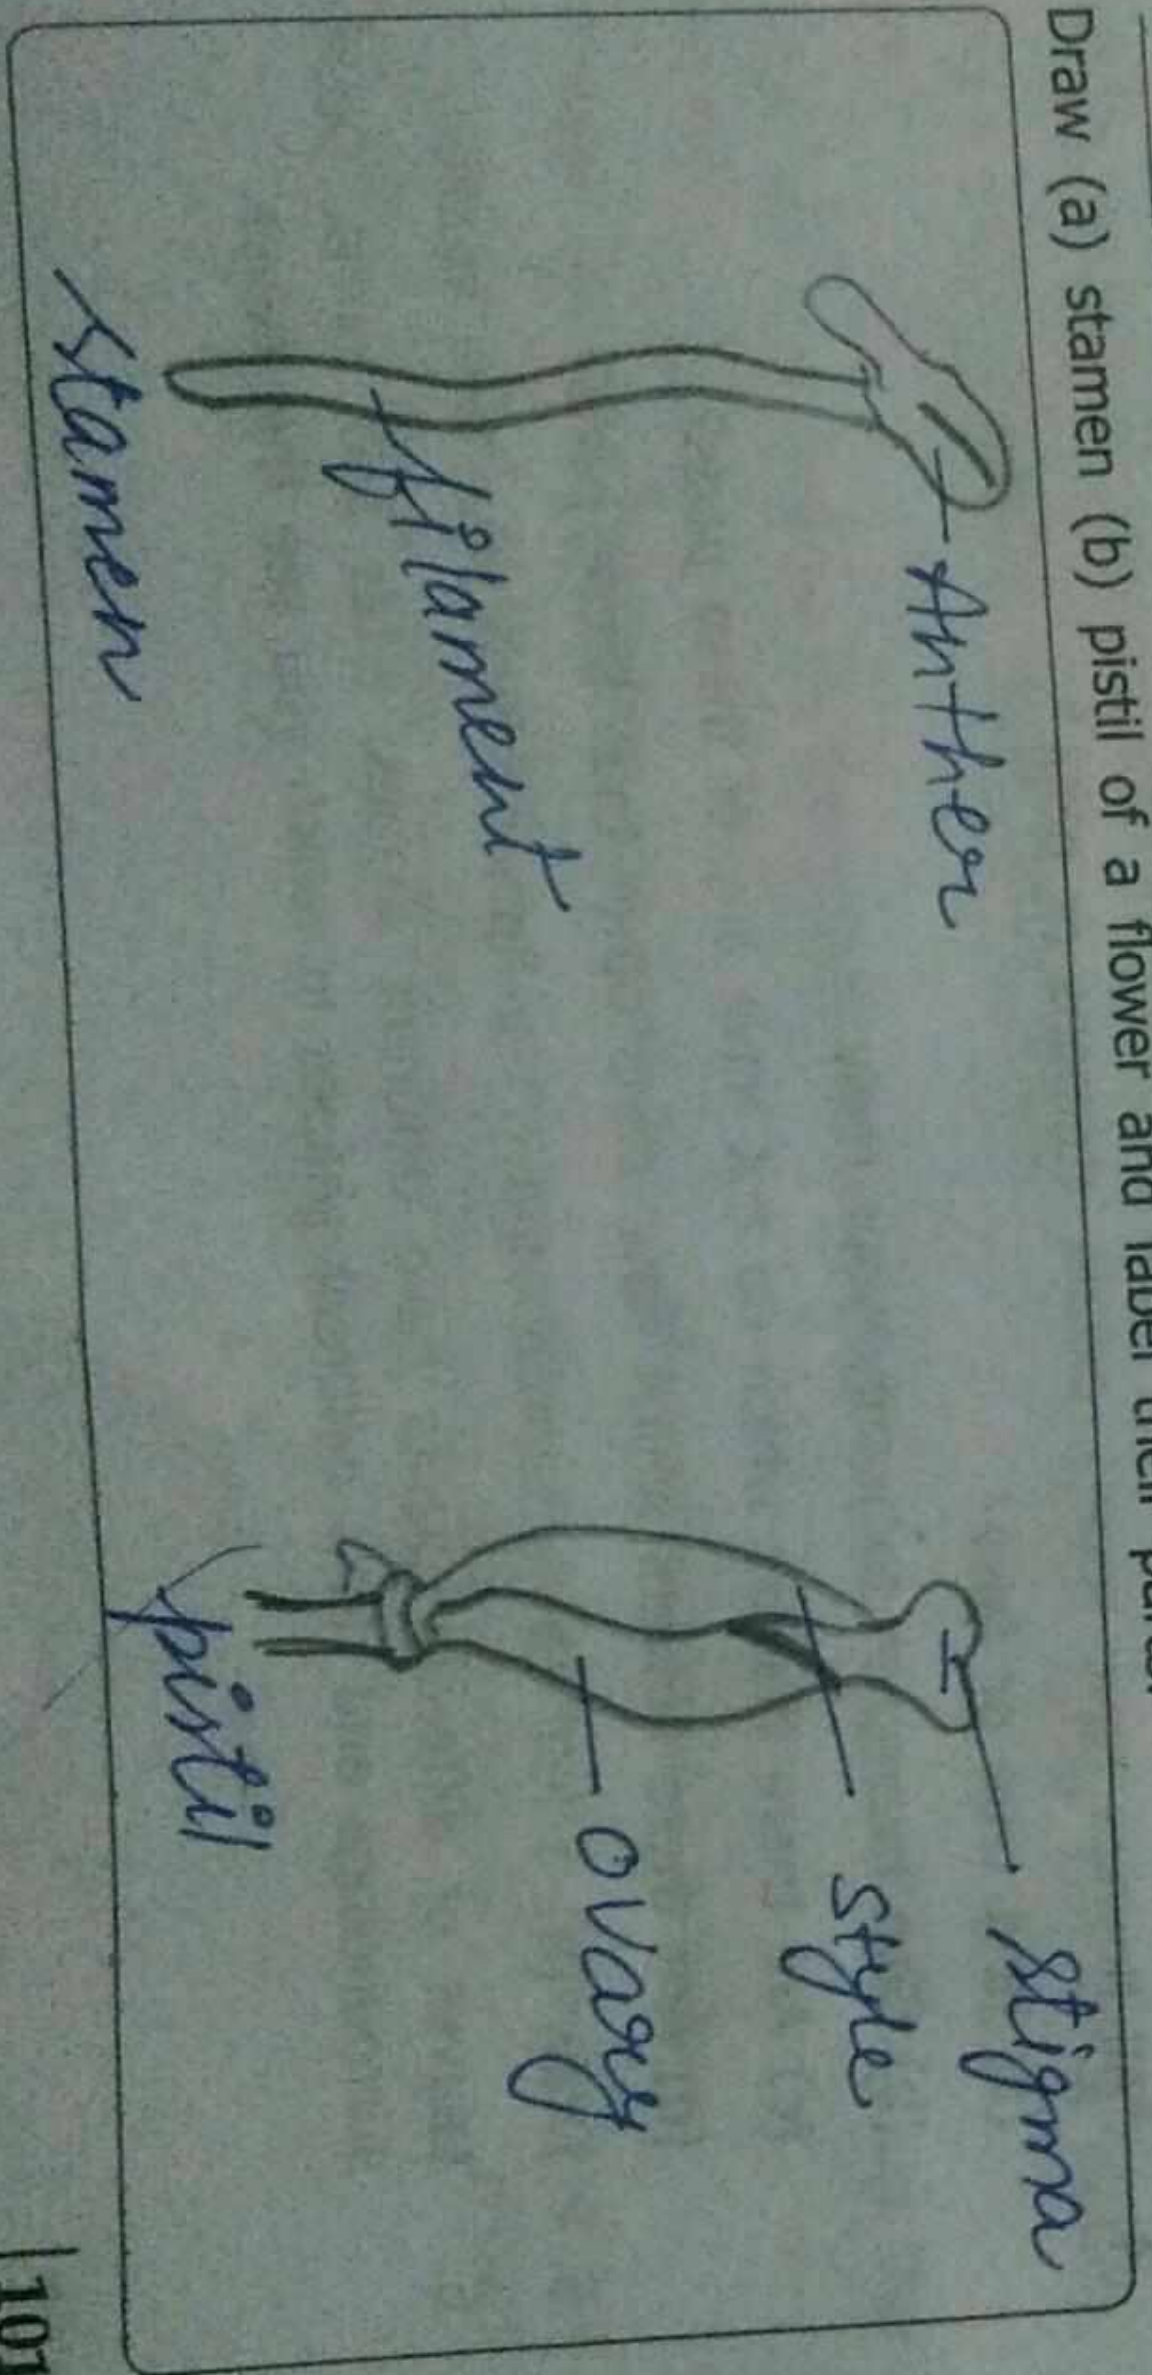 Draw (a) stamen (b) pistil of a flower and label their parts.
Anther
filament
stamen
stigma
style
ovary
pistil
101